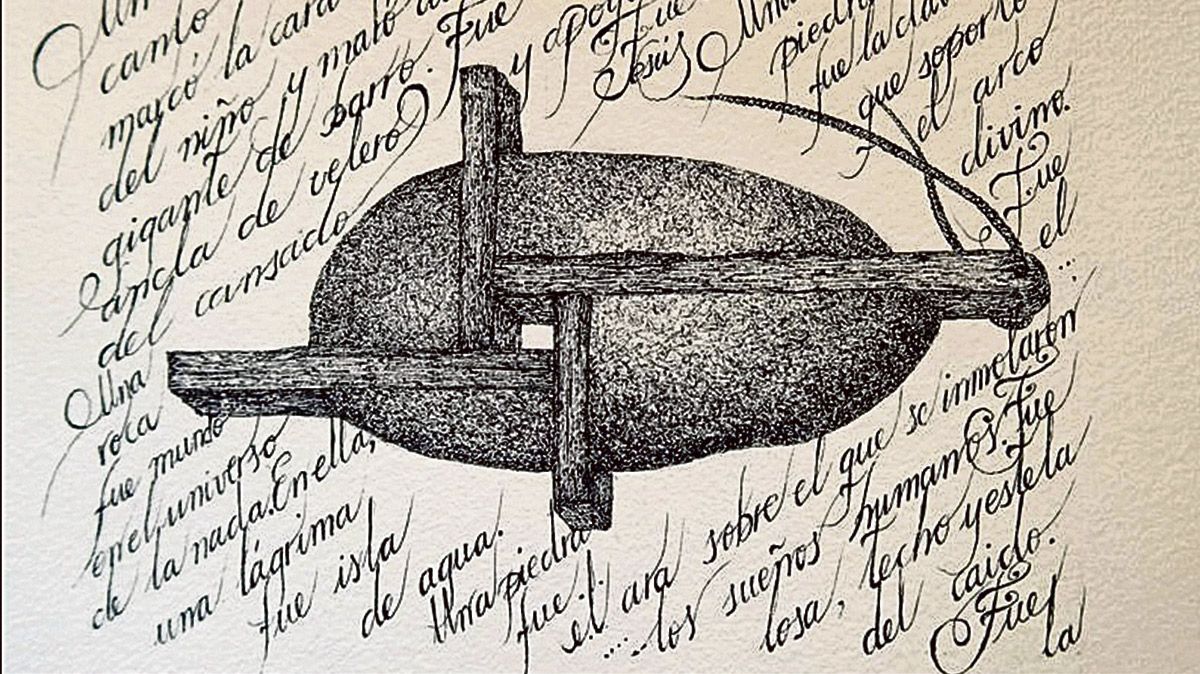 canto
marcó la cara
del niño y mató
gigante de barro. Fue
ancla de velero
del cansado
y
Fue
Jesús
Una
piedra
fue la
que soportó
el arco
divino.
Fue
el
...
Una
roca
fue mundo
en el universo
de la nada. En ella,
una lágrima
fue isla
de agua.
Una piedra
fue...
el ara sobre el que se inmolaron
....los sueños humanos. Fue
losa, techo y estela
del caido.
Fue
la